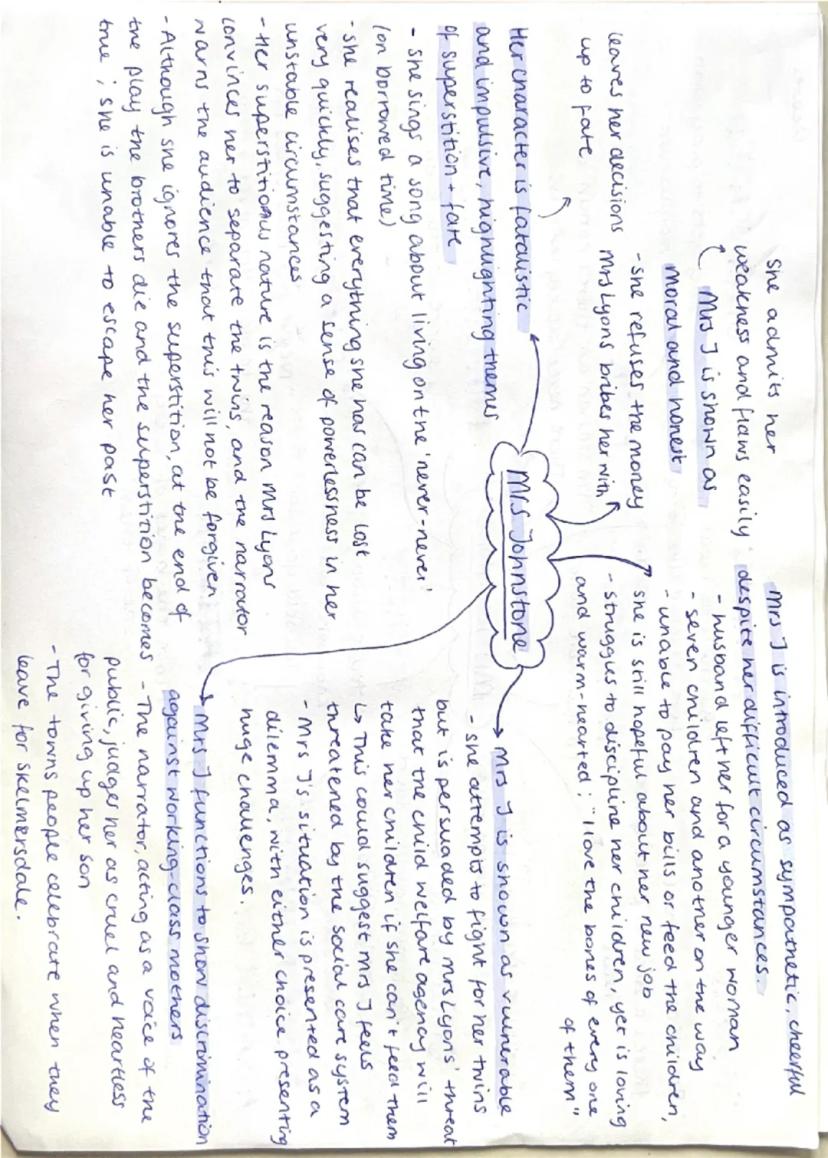 Mrs Johnstone
Mrs J is introduced as sympathetic, cheerful
despite her difficult circumstances.
- husband left her for a younger woman
- seven children and another on the way
- unable to pay her bills or feed the children,
she is still hopeful about her new job
- struggles to discipline her children, yet is loving
and warm-hearted; "I love the bones of every one
of them"
She admits her
weakness and flaws easily
Mrs J is shown as
moral and honest
- she refuses the money
Mrs Lyons bribes her with
leaves her decisions
up to fate
Her character is fatalistic
and impulsive, highlighting themes
of superstition + fate
- she sings a song about living on the 'never-never'
(on borrowed time)
- she realises that everything she has can be lost
very quickly, suggesting a sense of powerlessness in her
unstable circumstances
- Her superstitious nature is the reason Mrs Lyons
convinces her to separate the twins, and the narrator
warns the audience that this will not be forgiven
- Although she ignores the superstition, at the end of
the play the brothers die and the superstition becomes
true; she is unable to escape her past
Mrs J is shown as vulnerable
- she attempts to fight for her twins
but is persuaded by Mrs Lyons' threat
that the child welfare agency will
take her children if she can't feed them
↳ This could suggest Mrs J feels
threatened by the social care system
- Mrs J's situation is presented as a
dilemma with either choice presenting
huge challenges.
Mrs J functions to show discrimination
against working-class mothers
- The narrator, acting as a voice of the
public, judges her as cruel and heartless
for giving up her son
- The towns people celebrate when they
leave for skelmersdale.